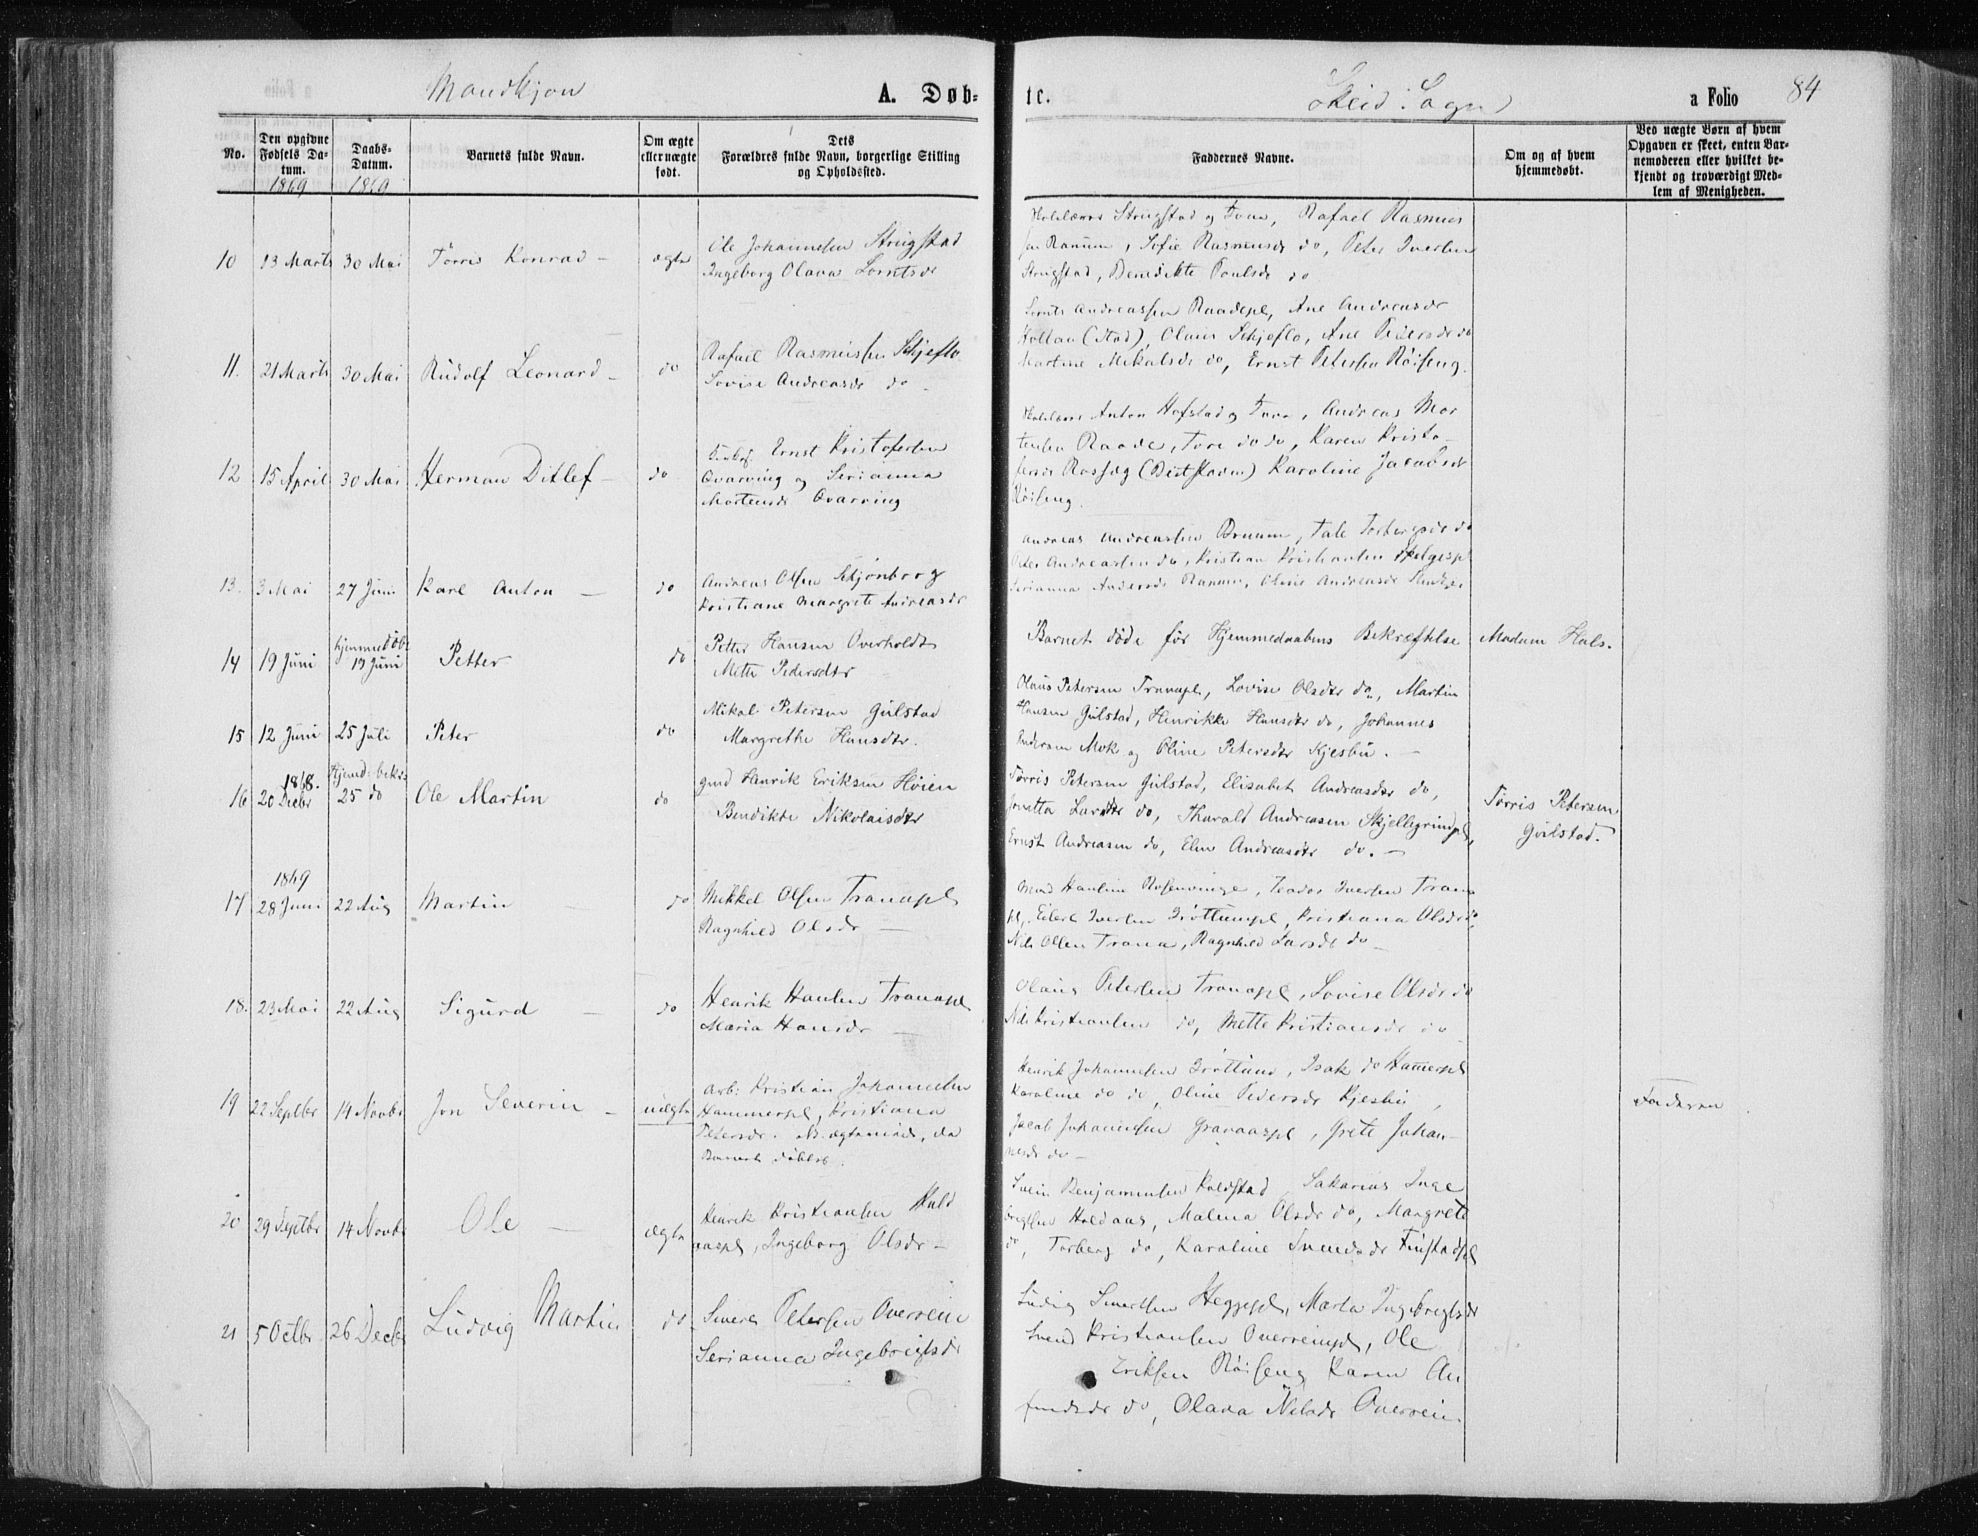 Mandkjøn
A. Døb-
te.
Skeid Sogn
a Folio 84
No.
Den opgivne Fødsels Datum.
1869
Daabs-Datum.
1869
Barnets fulde Navn.
Om ægte eller uægte født.
Dets Forældres fulde Navn, borgerlige Stilling og Opholdssted.
Faddernes Navne.
Om og af hvem hjemmedøbt.
Ved uægte Børn af hvem Opgaven er skeet, enten Barnemoderen eller hvilket bekjendt og troværdigt Medlem af Menigheden.
10 13 Marts 30 Mai Tørris Konrad – ægte
Ole Johannesen Strugstad
Ingeborg Olava Lorntsdr
Strugstad og Kone, Rafael Rasmus
sen Ranum, Sofie Rasmusdr do, Peter Iversen
Strugstad, Benedikte Paulsdr do
11. 21 Marts 30 Mai Rudolf Leonard – do
Rafael Rasmussen Skjeflo
Lovise Andreasdr do
Lornts Andreassen Raadepl, Ane Andreasdr
Hollan (Stod), Olaus Skjeflo, Ane Pedersdr do
Martine Mikalsdr do, Ernst Petersen Røiseng.
12 15 April 30 Mai Herman Ditlef – do
Ernst Kristofersen
Qvarving og Serianna
Mortensdr Qvarving
Anton Hofstad og Kone, Andreas Mor
tensen Raade, Kone do do, Karen Kristo-
fersdr Karoline Jacobsdr
Røiseng.
13. 3 Mai 27 Juni Karl Anton – do
Andreas Olsen Skjønborg
Kristiane Margrete Andreasdr
Andreas Andreassen Bruum, Tale Torbergsdr do
Peter Andreassen do, Kristian Kristiansen
Serianna Andersdr Ranum, Oline Andreasdr
14 19 Juni hjemmedøbt
19 Juni Petter do
Petter Hansen Overholdt
Mette Pedersdtr
Barnet døde før Hjemmedaabens Bekræftelse Madam Hals.
15 12 Juni 25 Juli Peter do
Mikal Petersen Gulstad
Margrethe Hansdtr.
Olaus Petersen Tranapl, Lovise Olsdtr do, Martin
Hansen Gulstad, Henrikke Hansdtr do, Johannes
Andersen Mok og Oline Petersdtr Kjesbu. –
16 1868.
20 Decbr Hjemd: bekr.
25 do Ole Martin do
gmd Henrik Eriksen Høien
Bendikte Nikolaisdtr
Tørris Petersen Gulstad, Elisabet Andreasdtr do,
Jonetta Larsdtr do, Tharald Andreasen Skjellegrindpl,
Ernst Andreasen do, Elen Andreasdtr do. –
Tørris Petersen
Gulstad.
17 1869
28 Juni 22 Aug Martin – do
Mikkel Olsen Tranapl
Ragnhild Olsdr –
Hanline Rosenvinge, Teodor Iversen Trana
pl, Eilert Iversen Grøttumpl, Kristiana Olsdr do,
Nils Olsen Trana, Ragnhild Larsdr do –
18. 23 Mai 22 Aug Sigurd – do
Henrik Hansen Tranapl
Maria Hansdr –
Olaus Petersen Tranapl, Lovise Olsdr do
Nils Kristiansen do, Mette Kristiansdr do
19 22 Septbr 14 Novbr Jon Severin – uægte
Arb: Kristian Johannesen
Hammerpl, Kristiana
Petersdr. NB. ægteviede, da
Barnet døbtes.
Henrik Johannesen Grøttum, Isak do Hammerpl
Karoline do do, Oline Pedersdr Kjesbu,
Jacob Johannesen Granaaspl, Grete Johan-
nesdr do –
Faderen
20 29 Septbr 14 Novbr Ole – ægte
Henrik Kristiansen Hald
aaspl, Ingeborg Olsdr –
Svein Benjaminsen Kvelstad, Sakarias Inge
brigtsen Haldaas, Malena Olsdr do, Margrete
do, Torberg do, Karoline Svendsdr Finstadpl
21 5 Octbr 26 Decbr Ludvig Martin do
Sivert Petersen Overrein
Serianna Ingebrigtsdr
Ludvig Sivertsen Heggepl, Marta Ingebrigtsdr
Svend Kristiansen Overreinpl, Ole
Eriksen Røiseng Karen An
findsdr do, Olava Nilsdr Overrein